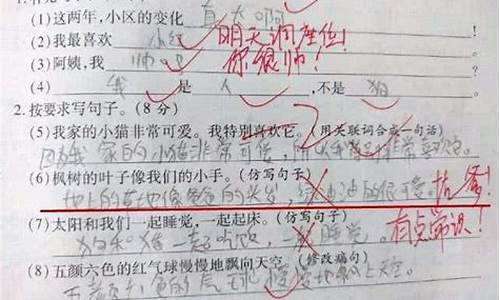 (1)这两年,小区的变化 真大啊
(2)我最喜欢 小红 明天调座位!
(3)阿姨,我 帅吧 你很帅!
(4) 我 是 人 ,不是 狗
2.按要求写句子。(8分)
(5)我家的小猫非常可爱。我特别喜欢它。(用关联词合成一句话)
因为我家的小猫非常可爱,所以我 非常喜欢它。
(6)枫树的叶子像我们的小手。(仿写句子)
地上的草地像爸爸的头发,绿油油的很 。
(7)太阳和我们一起睡觉,一起起床。(仿写句子)
狗和猫一起吃饭,一起睡觉。 有点常识!
(8)五颜六色的红气球慢慢地飘向天空。(修改病句)
五颜六色的气球慢慢地飘上天空。